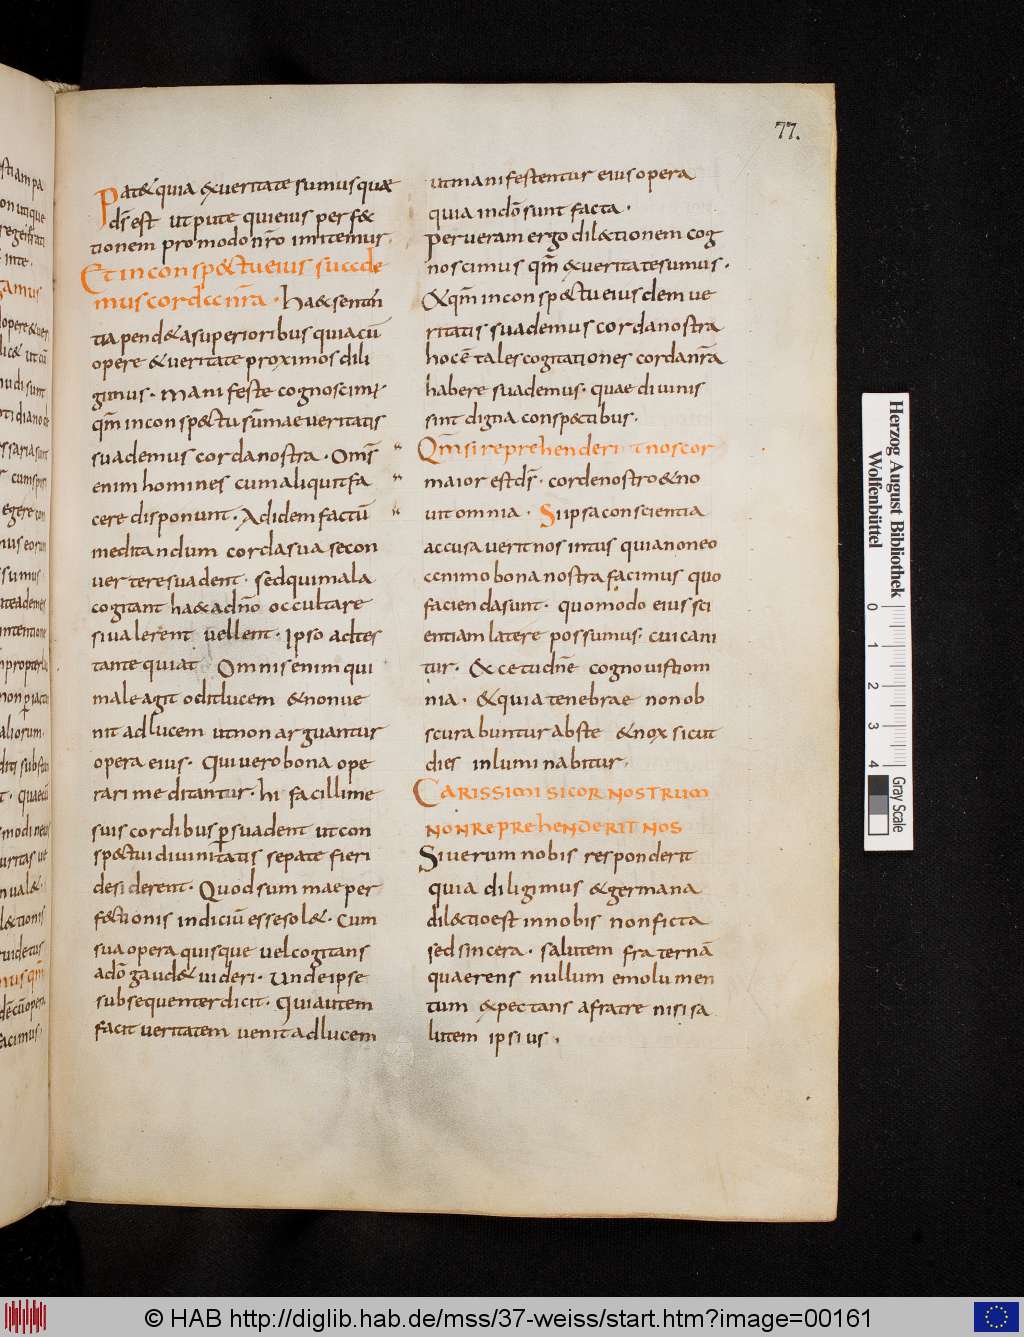 77.
Pat& quia exueritate sumus quae
dī est ut pute qui eius perf&
tionem pro modo nr̄o imitemur.
Et in conspectu eius suade
mus corda nr̄a. Ha& senten
tia pend& a superioribus quia cū
opere & ueritate proximos dili
gimus. manifeste cognoscimus
qm̄ in conspectu sūmae ueritatis
suademus corda nostra. Omīs
enim homines cum aliquit fa
cere disponunt. Ad idem factū
meditandum corda sua se con
uertere suadent. sed qui mala
cogitant ha& ad no occultare
si ualerent uellent. Ipso adtes
tante qui ait Omnis enim qui
male agit odit lucem & non ue
nit ad lucem ut non arguantur
opera eius. Qui uero bona ope
rari meditantur hi facillime
suis cordibus psuadent ut con
spectui diuinitatis se pate fieri
desiderent. Quod summae per
fectionis indiciū esse sol&. Cum
sua opera quisque uel cogitans
a dō gaud& uideri. Unde ipse
subsequenter dicit. Qui autem
facit ueritatem uenit ad lucem
ut manifestentur eius opera
quia in dō sunt facta.
per ueram ergo dilectionem cog
noscimus qm̄ ex ueritate sumus.
& qm̄ in conspectu eius dem ue
ritatis suademus corda nostra
hoc ē tales cogitationes corda nr̄a
habere suademus. quae diuinis
sint digna conspectibus.
Qm̄ si reprehenderit nos cor
maior est dī. corde nostro & no
uit omnia. Si ipsa conscientia
accusauerit nos intus quia non eo
animo bona nostra facimus quo
facienda sunt. quomodo eius sci
entiam latere possumus. cui cani
tur. Ecce tu dn̄e cognouisti om
nia. & quia tenebrae non ob
scurabuntur abs te & nox sicut
dies inluminabitur.
Carissimi si cor nostrum
non reprehenderit nos
Si uerum nobis responderit
quia diligimus & germana
dilectio est in nobis non ficta
sed sincera. salutem fraternā
quaerens nullum emolumen
tum expectans a fratre nisi sa
lutem ipsius.
Herzog August Bibliothek
Wolfenbüttel
0 1 2 3 4
Gray Scale
© HAB http://diglib.hab.de/mss/37-weiss/start.htm?image=00161